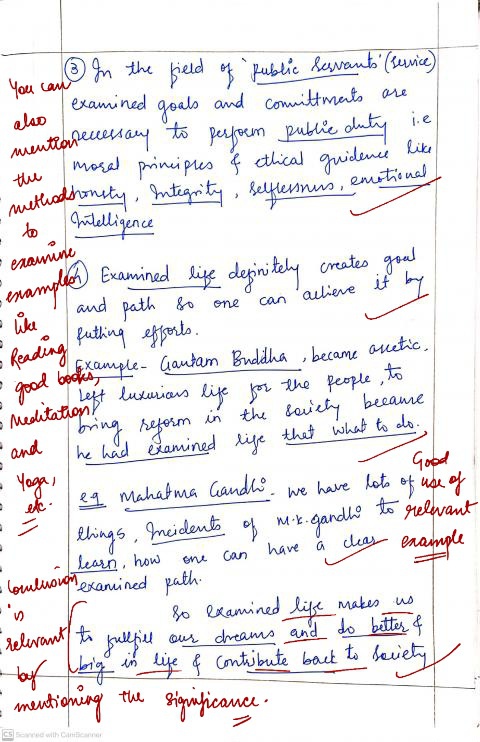 ③ In the field of 'public servants' (service)
examined goals and committments are
necessary to perform public duty i.e
moral principles & ethical guidence like
honsty, Integrity, selflessnus, emotional
Intelligence
④ Examined life definitely creates goal
and path so one can achieve it by
putting efforts.
Example - Gautam Buddha, became ascetic.
Left luxurians life for the people, to
bring reform in the society because
he had examined life that what to do.
eg Mahatma Gandhi. we have lots of
things, Incidents of M.K.gandhi to
learn, how one can have a clear
examined path.
So examined life makes us
to fullfill our dreams and do better &
big in life & contribute back to society
You can
also
mention
the
methods
to
examine
examples
like
Reading
good books,
Meditation
and
Yoga,
etc.
Good
use of
relevant
example
Conclusion
is
relevant
by
mentioning the significance.
CS Scanned with CamScanner